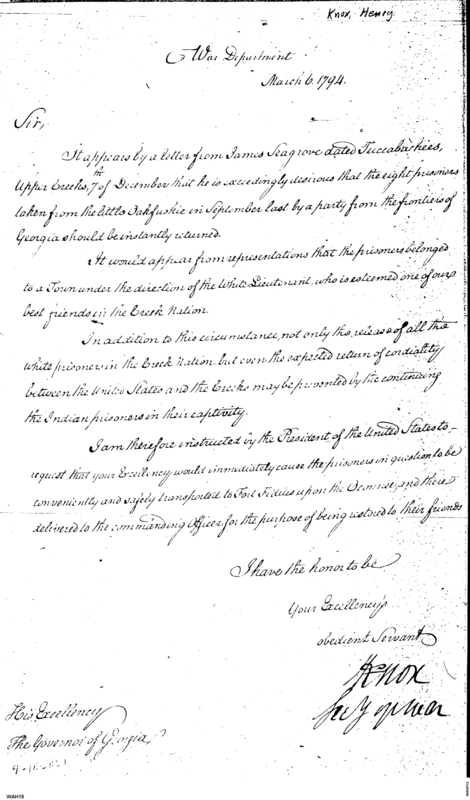 Knox, Henry
War Department
March 6. 1794.
Sir,
It appears by a letter from James Seagrove dated Tuccabachees,
Upper Creeks, 7th of December that he is exceedingly desirous that the eight prisoners
taken from the little Oakfuskie in September last by a party from the frontiers of
Georgia should be instantly returned.
It would appear from representations that the prisoners belonged
to a Town under the direction of the White Lieutenant, who is esteemed one of our
best friends in the Creek Nation.
In addition to this circumstance, not only the release of all the
white prisoners in the Creek Nation but even the expected return of cordiality
between the United States and the Creeks may be prevented by the continuing
the Indian prisoners in their captivity.
I am therefore instructed by the President of the United States to
request that your Excellency would immediately cause the prisoners in question to be
conveniently and safely transported to Fort Fidius upon the Oconee, and there
delivered to the commanding Officer for the purpose of being restored to their friends
I have the honor to be
Your Excellency's
obedient Servant
HKnox
Secy of War
His Excellency
The Governor of Georgia
WAH15